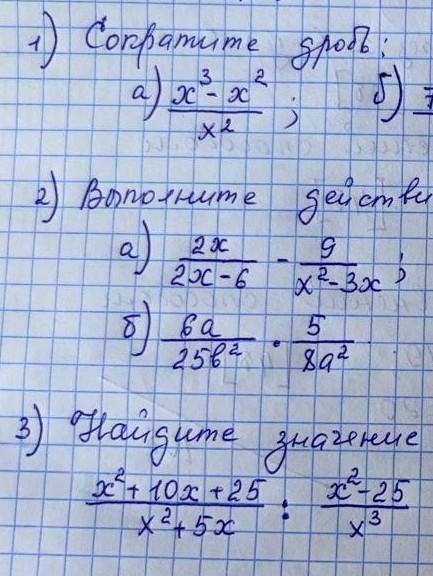 1) Сократите дробь:
а) (x³ - x²)/x² ; б) 7
2) Выполните действи
а) 2x/(2x-6) - 9/(x²-3x) ;
б) 6a/(25b²) · 5/(8a²)
3) Найдите значение
(x²+10x+25)/(x²+5x) : (x²-25)/x³